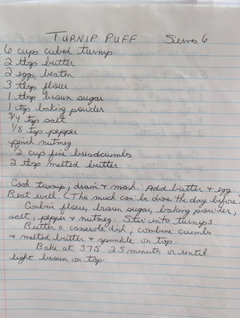 TURNIP PUFF Serves 6
6 cups cubed turnip
2 tbsp butter
2 eggs, beaten
3 tbsp flour
1 tbsp brown sugar
1 tsp baking powder
3/4 tsp salt
1/8 tsp pepper
pinch nutmeg
1/2 cup fine breadcrumbs
2 tbsp melted butter
Cook turnip, drain & mash. Add butter & egg
Beat well. (This much can be done the day before)
Combine flour, brown sugar, baking powder,
salt, pepper & nutmeg. Stir into turnips.
Butter a casserole dish, combine crumbs
& melted butter & sprinkle on top.
Bake at 375 25 minutes or until
light brown on top.